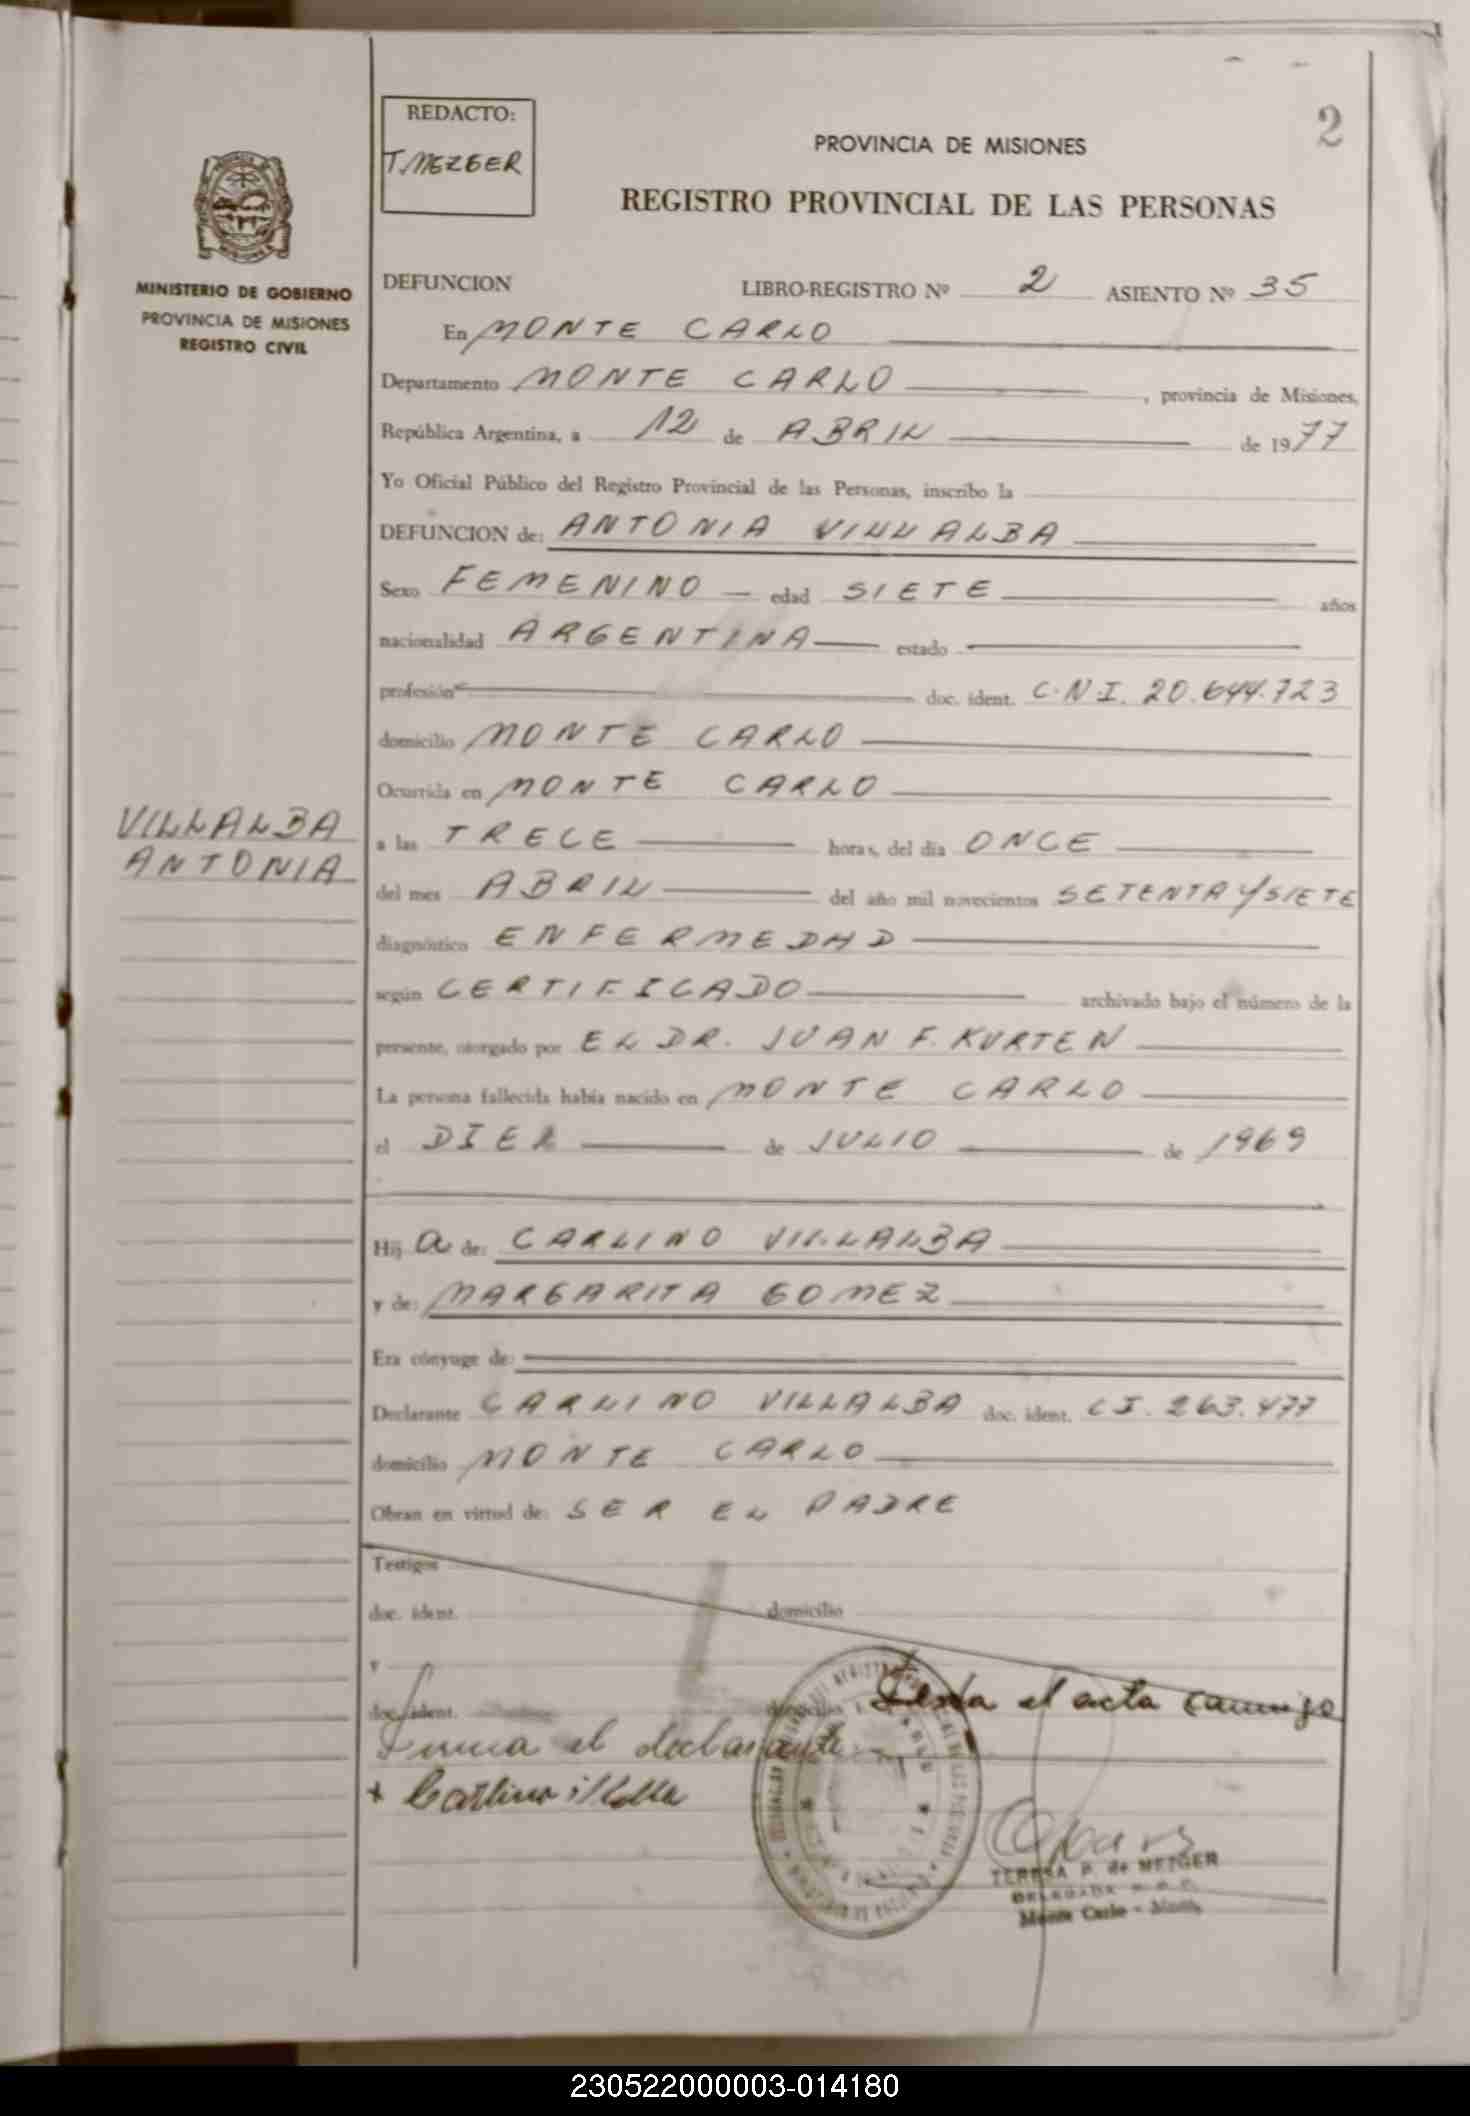 REDACTO:
T. MEZGER
2
PROVINCIA DE MISIONES
REGISTRO PROVINCIAL DE LAS PERSONAS
MINISTERIO DE GOBIERNO
PROVINCIA DE MISIONES
REGISTRO CIVIL
DEFUNCION LIBRO-REGISTRO Nº 2 ASIENTO Nº 35
En MONTE CARLO
Departamento MONTE CARLO, provincia de Misiones,
República Argentina, a 12 de ABRIL de 1977
Yo Oficial Público del Registro Provincial de las Personas, inscribo la
DEFUNCION de: ANTONIA VILLALBA
Sexo FEMENINO — edad SIETE años
nacionalidad ARGENTINA estado
profesión doc. ident. C.N.I. 20.644.723
domicilio MONTE CARLO
Ocurrida en MONTE CARLO
VILLALBA
ANTONIA
a las TRECE horas, del día ONCE
del mes ABRIL del año mil novecientos SETENTA Y SIETE
diagnóstico ENFERMEDAD
según CERTIFICADO archivado bajo el número de la
presente, otorgado por EL DR. JUAN F. KURTEN
La persona fallecida había nacido en MONTE CARLO
el DIEZ de JULIO de 1969
Hija de: CARLINO VILLALBA
y de: MARGARITA GOMEZ
Era cónyuge de:
Declarante CARLINO VILLALBA doc. ident. C.I. 263.477
domicilio MONTE CARLO
Obran en virtud de: SER EL PADRE
Testigos
doc. ident. domicilio
y
doc. ident. domicilio Leida el acta conmigo
Firma el declarante
TERESA P. de MEZGER
DELEGADA
Monte Carlo - Mnes.
230522000003-014180